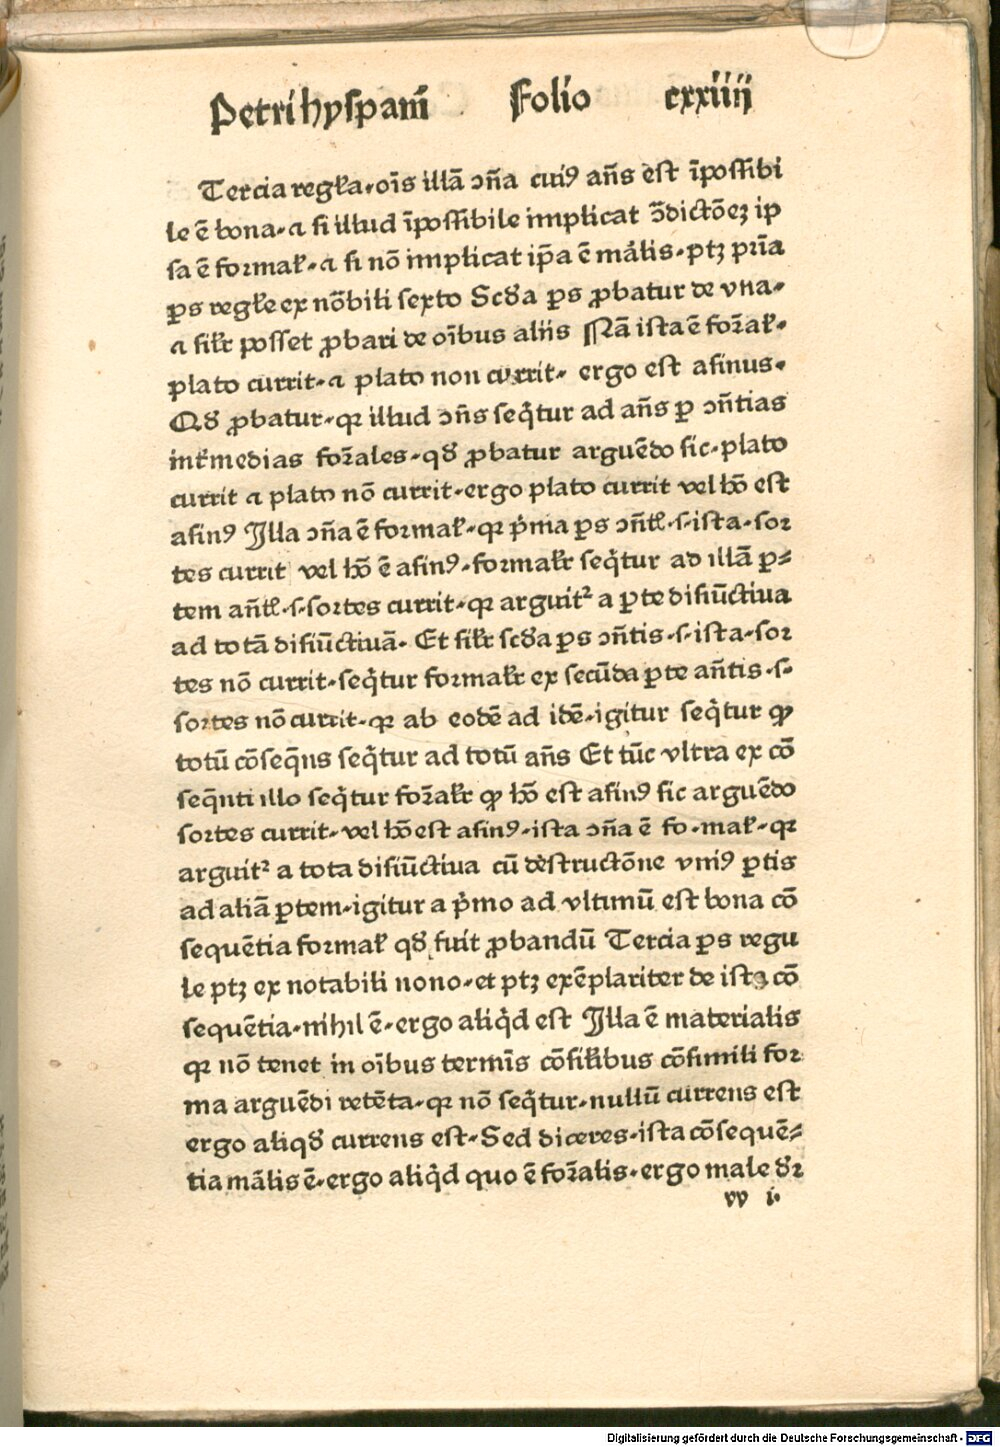 Petri hyspani̅ Folio cxxiiij
Tercia regl̅a·oi̅s illa̅ ↄn̅a cuiꝰ an̅s est i̅possibi
le e̅ bona·⁊ si illud i̅possibile implicat ↄ̅dicto̅eꝫ ip
sa e̅ formal̅·⁊ si no̅ implicat ip̅a e̅ ma̅lis·ptꝫ pri̅a
ꝑs regl̅e ex no̅bili sexto Scd̅a ꝑs ꝓbatur de vna·
⁊ sil̅r posset ꝓbari de oi̅bus aliis Na̅ ista e̅ for̅al̅·
plato currit·⁊ plato non currit· ergo est asinus·
Qd̅ ꝓbatur·qꝛ illud ↄn̅s seq̅tur ad an̅s ꝑ ↄn̅tias
int̅medias for̅ales·qd̅ ꝓbatur argue̅do sic·plato
currit ⁊ plato no̅ currit·ergo plato currit vel ho̅ est
asinꝰ Illa ↄn̅a e̅ formal̅·qꝛ p̅ma ꝑs ↄn̅tl̅·s·ista·sor
tes currit vel ho̅ e̅ asinꝰ·formal̅r seq̅tur ad illa̅ ꝑ⸗
tem an̅tl̅·s·sortes currit·qꝛ arguit² a ꝑte disiu̅ctiua
ad tota̅ disiu̅ctiua̅· Et sil̅r scd̅a ꝑs ↄn̅tis·s·ista·sor
tes no̅ currit·seq̅tur formal̅r ex secu̅da ꝑte an̅tis·s·
sortes no̅ currit·qꝛ ab eode̅ ad ide̅·igitur seq̅tur ꝙ
totu̅ co̅seq̅ns seq̅tur ad totu̅ an̅s Et tu̅c vltra ex co̅
seq̅nti illo seq̅tur for̅al̅r ꝙ ho̅ est asinꝰ sic argue̅do
sortes currit·vel ho̅ est asinꝰ·ista ↄn̅a e̅ fo·mal̅·qꝛ
arguit² a tota disiu̅ctiua cu̅ destructo̅ne vniꝰ ꝑtis
ad alia̅ ꝑtem·igitur a p̅mo ad vltimu̅ est bona co̅
seque̅tia formal̅ qd̅ fuit ꝓbandu̅ Tercia ꝑs regu
le ptꝫ ex notabili nono·et ptꝫ exe̅plariter de ista co̅
seque̅tia·nihil e̅·ergo aliq̅d est Illa e̅ materialis
qꝛ no̅ tenet in oi̅bus termi̅s co̅sil̅ibus co̅simili for
ma argue̅di rete̅ta·qꝛ no̅ seq̅tur·nullu̅ currens est
ergo aliqd̅ currens est·Sed diceres·ista co̅seque̅⸗
tia ma̅lis e̅·ergo aliq̅d quo e̅ for̅alis·ergo male d̅r
vv i·
Digitalisierung gefördert durch die Deutsche Forschungsgemeinschaft - DFG